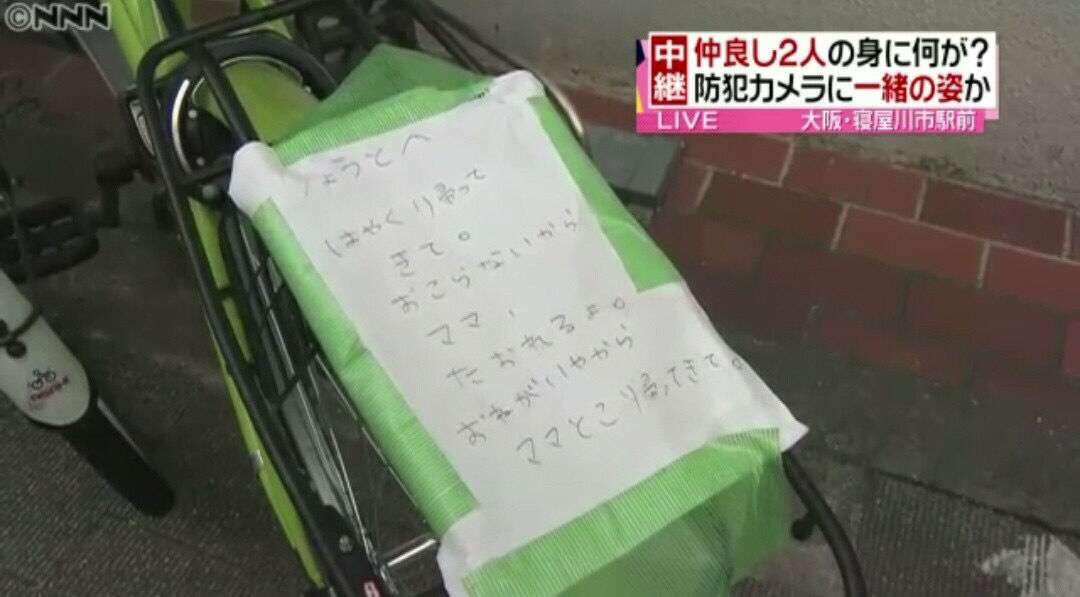 ©NNN
中継
仲良し2人の身に何が?
防犯カメラに一緒の姿か
LIVE
大阪・寝屋川市駅前
りょうとへ
はやく帰って
きて。
おこらないから
ママ、
たおれるよ。
おねがいやから
ママとこ帰ってきて。